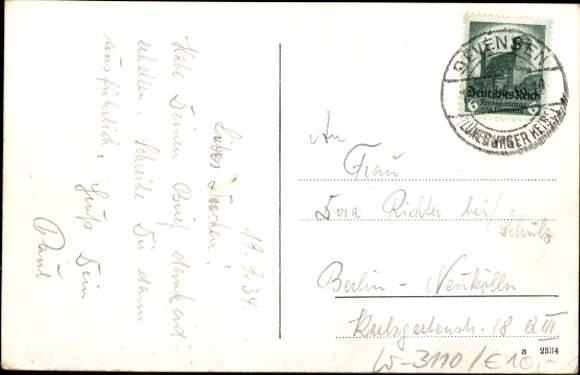 19.9.34
Liebes Dorchen!
Habe Deinen Brief dankend
erhalten. Schreibe Dir dann
ausführlich. Gruß Dein
Paul
BEVENSEN
(LÜNEBURGER HEIDE)
Deutsches Reich
Reichsparteitag
1934 Nürnberg
6 6
An
Frau
Dora Richter bei/
Schulz
Berlin - Neukölln
Karlsgartenstr. 18 III
a 2334
W-3110/€10,-